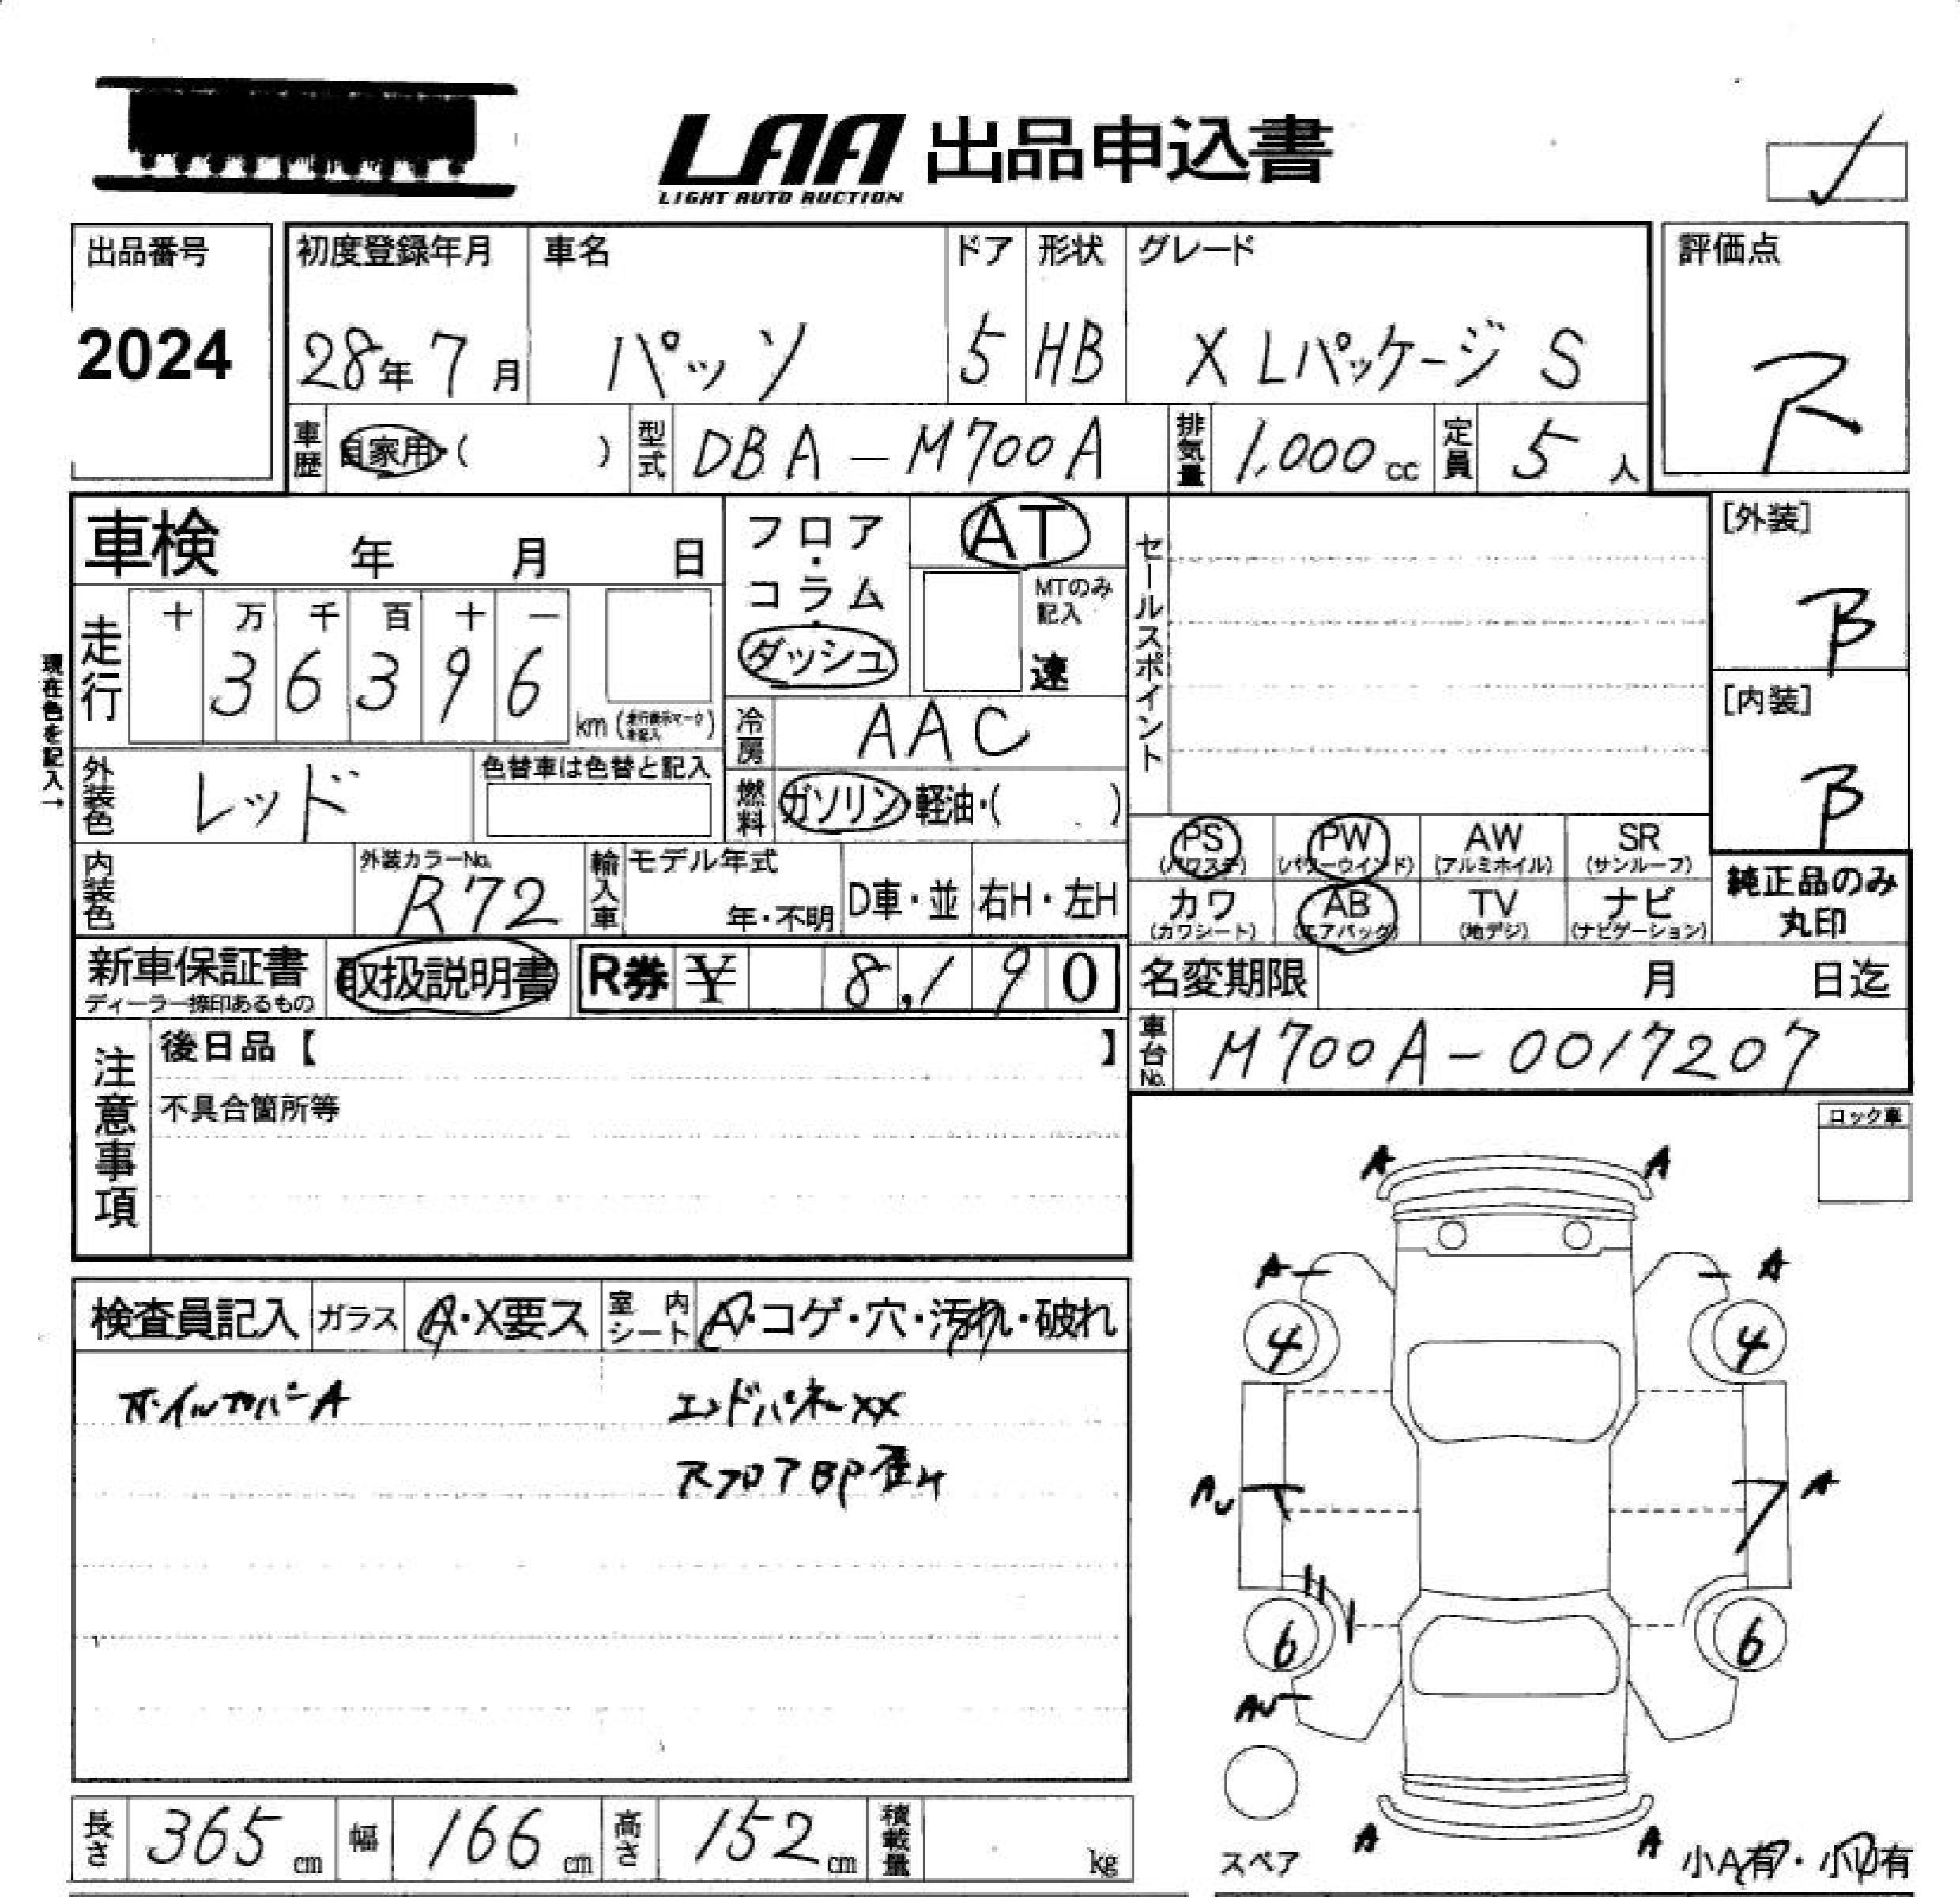 LAA 出品申込書
LIGHT AUTO AUCTION
出品番号
2024
初度登録年月 車名 ドア 形状 グレード
28年 7月 パッソ 5 HB X Lパッケージ S
評価点
R
車歴 自家用・( ) 型式 DBA-M700A 排気量 1,000 cc 定員 5 人
車検 年 月 日
フロア・コラム・ダッシュ
AT
MTのみ記入
速
セールスポイント
[外装]
B
[内装]
B
現在色を記入→
走行 十 万 千 百 十 一
3 6 3 9 6 km (走行表示マーク未記入)
冷房 AAC
外装色 レッド 色替車は色替と記入
燃料 ガソリン・軽油・( )
内装色 外装カラーNo. R72
輸入車 モデル年式 年・不明 D車・並 右H・左H
PS (パワステ) PW (パワーウインド) AW (アルミホイル) SR (サンルーフ)
カワ (カワシート) AB (エアバッグ) TV (地デジ) ナビ (ナビゲーション)
純正品のみ
丸印
新車保証書 ディーラー捺印あるもの 取扱説明書 R券 ¥ 8,190
名変期限 月 日迄
車台No. M700A-0017207
注意事項
後日品【 】
不具合箇所等
ロック車
検査員記入 ガラス A・X要ス 室内シート A・コゲ・穴・汚れ・破れ
ホイルカバーA エンドパネルXX
RフロアBP歪み
A A
A A
4 4
AU A
6 6
AU
スペア
A A
小A有・小U有
長さ 365 cm 幅 166 cm 高さ 152 cm 積載量 kg